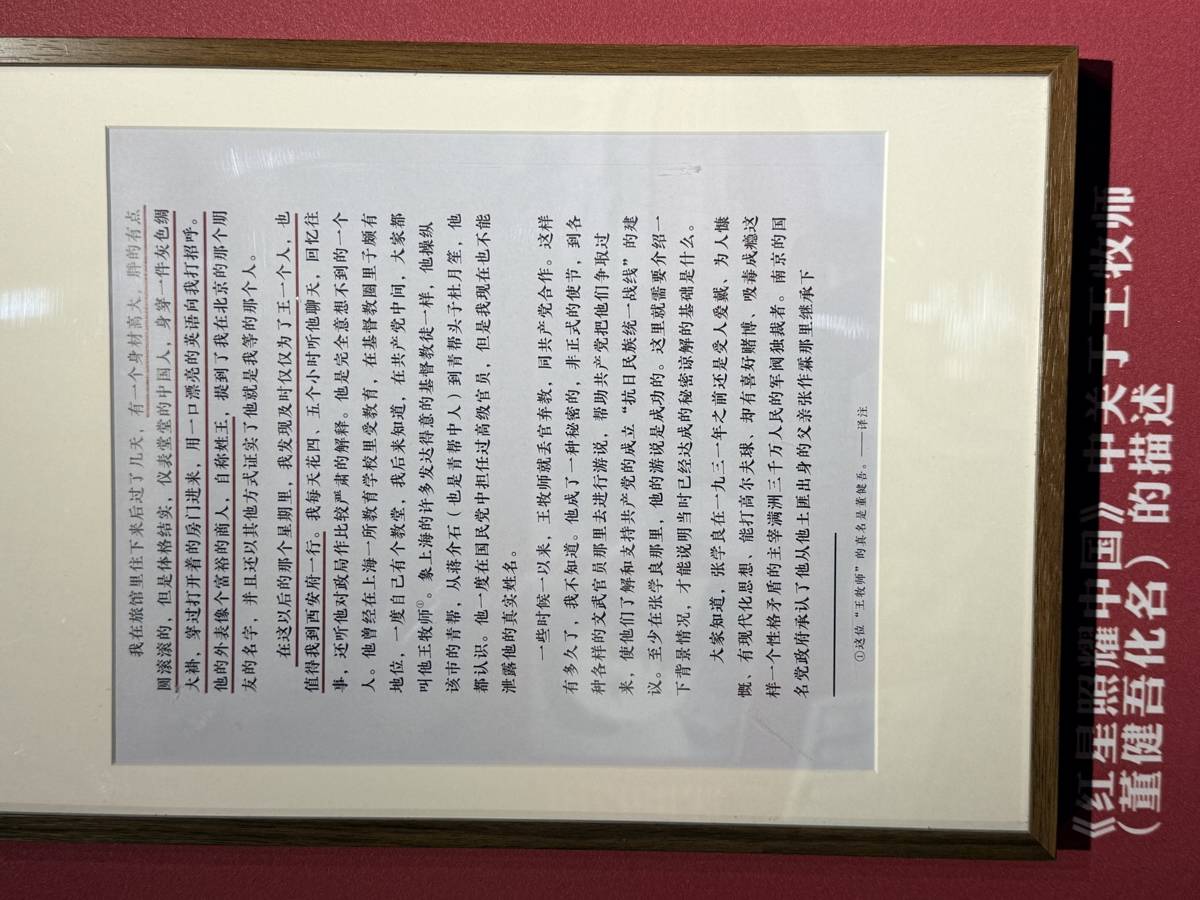 我在旅馆里住下来后过了几天，有一个身材高大，胖的有点
圆滚滚的，但是体格结实，仪表堂堂的中国人，身穿一件灰色绸
大褂，穿过打开着的房门进来，用一口漂亮的英语向我打招呼。
他的外表像个富裕的商人，自称姓王，提到了我在北京的那个朋
友的名字，并且还以其他方式证实了他就是我等的那个人。
在这以后的那个星期里，我发现及时仅仅为了王一个人，也
值得我到西安府一行。我每天花四、五个小时听他聊天，回忆往
事，还听他对政局作比较严肃的解释。他是完全意想不到的一个
人。他曾经在上海一所教育学校里受教育，在基督教圈里子颇有
地位，一度自己有个教堂，我后来知道，在共产党中间，大家都
叫他王牧师①。象上海的许多发达得意的基督教徒一样，他操纵
该市的青帮，从蒋介石（也是青帮中人）到青帮头子杜月笙，他
都认识。他一度在国民党中担任过高级官员，但是我现在也不能
泄露他的真实姓名。
一些时候一以来，王牧师就丢官弃教，同共产党合作。这样
有多久了，我不知道。他成了一种秘密的，非正式的使节，到各
种各样的文武官员那里去进行游说，帮助共产党把他们争取过
来，使他们了解和支持共产党的成立“抗日民族统一战线”的建
议。至少在张学良那里，他的游说是成功的。这里就需要介绍一
下背景情况，才能说明当时已经达成的秘密谅解的基础是什么。
大家知道，张学良在一九三一年之前还是受人爱戴、为人慷
慨、有现代化思想、能打高尔夫球、却有喜好赌博、吸毒成瘾这
样一个性格矛盾的主宰满洲三千万人民的军阀独裁者。南京的国
名党政府承认了他从他土匪出身的父亲张作霖那里继承下
①这位“王牧师”的真名是董健吾。——译注
《红星照耀中国》中关于王牧师
（董健吾化名）的描述